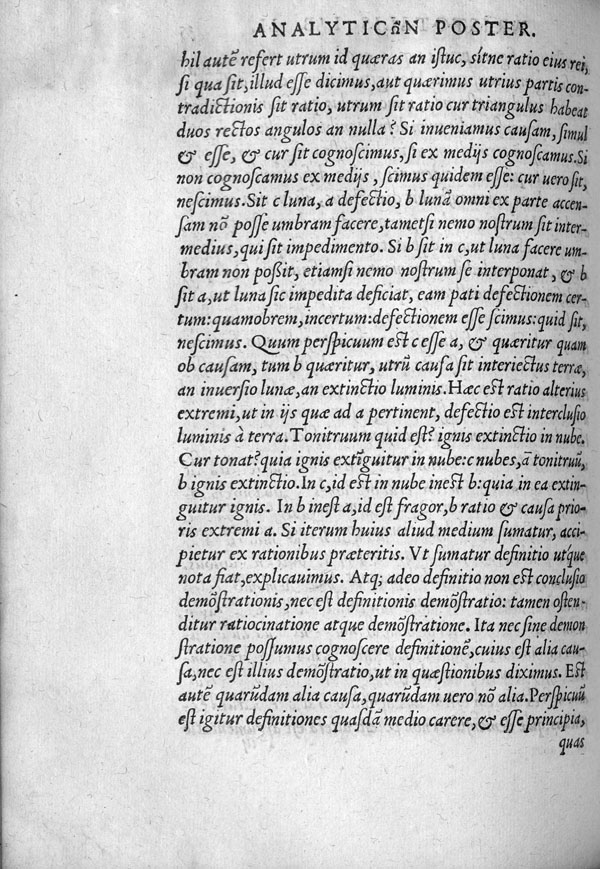 ANALYTICῶN POSTER.
hil autē refert utrum id quæras an istuc, sítne ratio eius rei,
si qua sit, illud esse dicimus, aut quærimus utrius partis con-
tradictionis sit ratio, utrum sit ratio cur triangulus habeat
duos rectos angulos an nulla? Si inueniamus causam, simul
& esse, & cur sit cognoscimus, si ex medijs cognoscamus. Si
non cognoscamus ex medijs, scimus quidem esse: cur uero sit,
nescimus. Sit c luna, a defectio, b lunā omni ex parte accen-
sam nō posse umbram facere, tametsi nemo nostrum sit inter-
medius, qui sit impedimento. Si b sit in c, ut luna facere um-
bram non poßit, etiamsi nemo nostrum se interponat, & b
sit a, ut luna sic impedita deficiat, eam pati defectionem cer-
tum: quamobrem, incertum: defectionem esse scimus: quid sit,
nescimus. Quum perspicuum est c esse a, & quæritur quam
ob causam, tum b quæritur, utrū causa sit interiectus terræ,
an inuersio lunæ, an extinctio luminis. Hæc est ratio alterius
extremi, ut in ijs quæ ad a pertinent, defectio est interclusio
luminis à terra. Tonitruum quid est? ignis extinctio in nube.
Cur tonat? quia ignis extīguitur in nube: c nubes, ā tonitruū,
b ignis extinctio. In c, id est in nube inest b: quia in ea extin-
guitur ignis. In b inest a, id est fragor, b ratio & causa prio-
ris extremi a. Si iterum huius aliud medium sumatur, acci-
pietur ex rationibus præteritis. Vt sumatur definitio utque
nota fiat, explicauimus. Atq; adeo definitio non est conclusio
demōstrationis, nec est definitionis demōstratio: tamen osten-
ditur ratiocinatione atque demōstratione. Ita nec sine demon
stratione possumus cognoscere definitionē, cuius est alia cau-
sa, nec est illius demōstratio, ut in quæstionibus diximus. Est
autē quarūdam alia causa, quarūdam uero nō alia. Perspicuū
est igitur definitiones quasdā medio carere, & esse principia,
quas